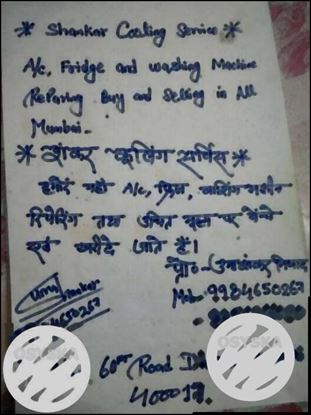 * Shankar Cooling Service *
A/c, Fridge and washing Machine
RePairing Buy and Selling in All
Mumbai.
* शंकर कूलिंग सर्विस *
हमारे यहाँ A/c, फ्रिज, वाशिंग मशीन
रिपेरिंग तथा उचित मूल्य पर बेचे
एवं खरीदे जाते हैं।
प्रो०- उमाशंकर निषाद
Mob. 9984650267
Uma Shankar
4650267
60 Road
4000
OSYSKA
OSYSKA